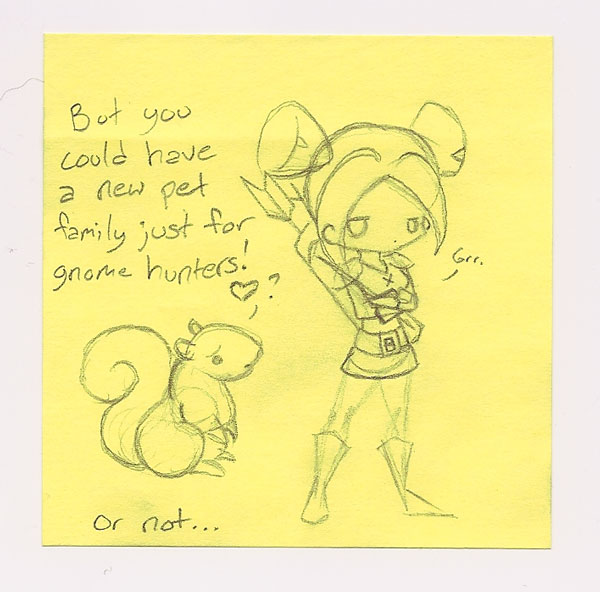 But you
could have
a new pet
family just for
gnome hunters!
♥?
Grr.
or not...